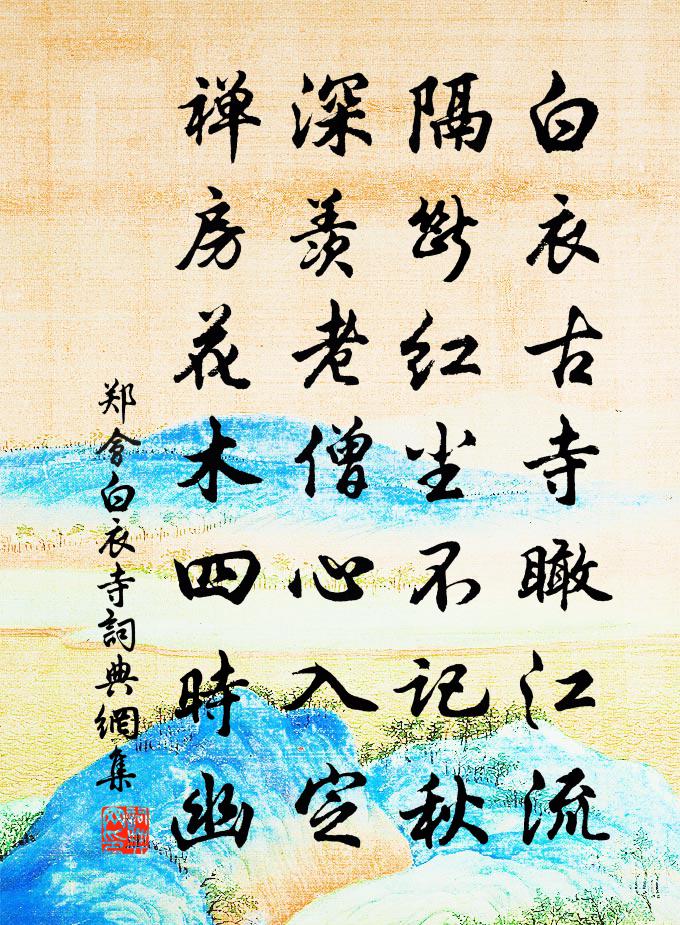 白衣古寺瞰江流
隔断红尘不记秋
深羡老僧心入定
禅房花木四時幽
郑会白衣寺詞典網集